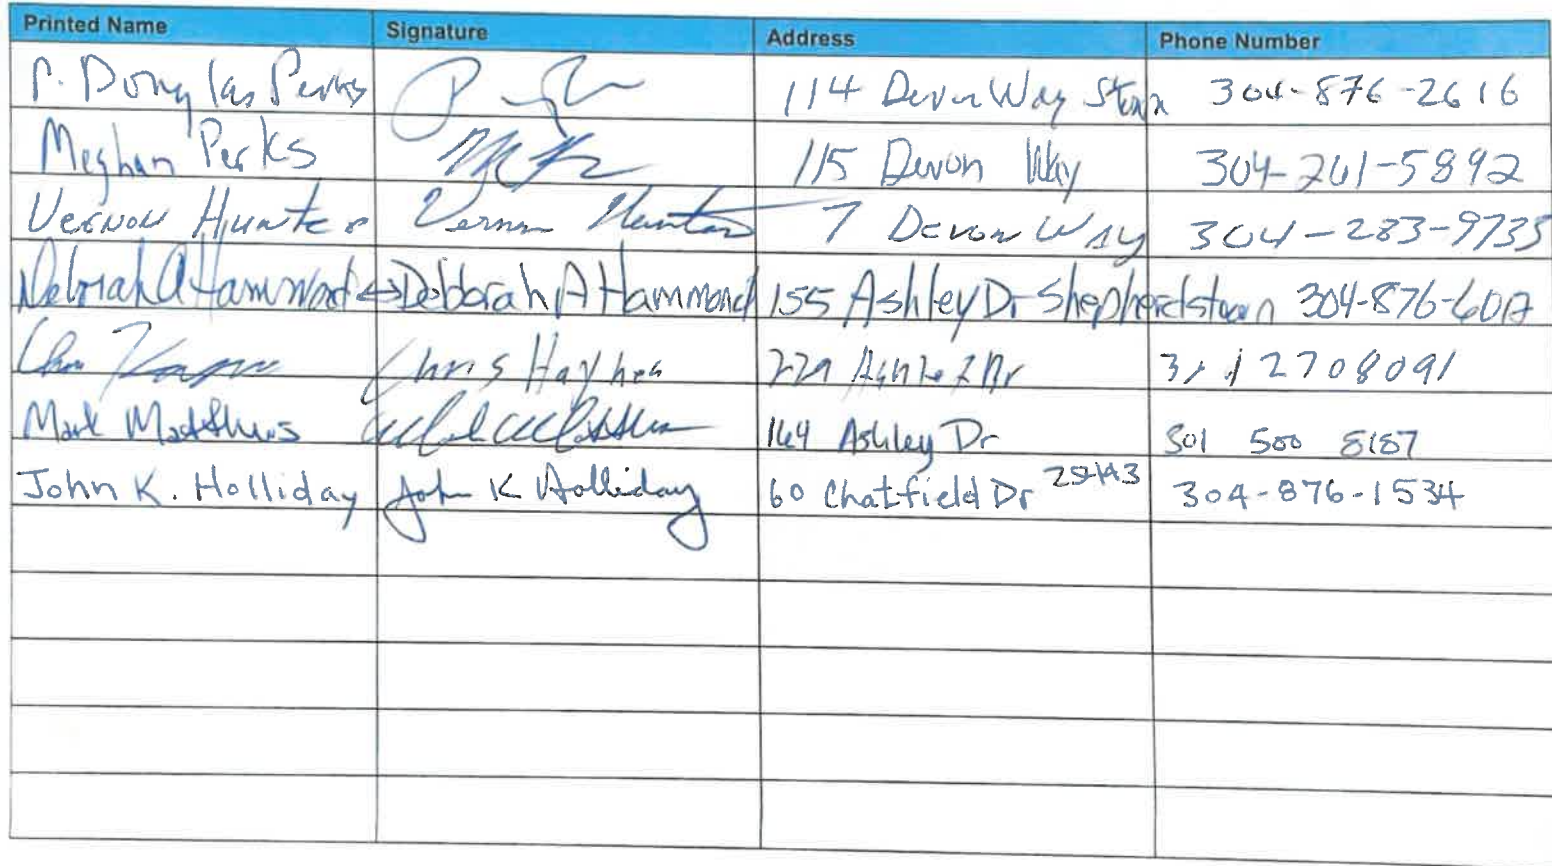 Printed Name Signature Address Phone Number
P. Douglas Perks 114 Devon Way 304-876-2616
Meghan Perks 115 Devon Way 304-261-5892
Vernon Hunter Vernon Hunter 7 Devon Way 304-283-9735
Deborah A Hammond ↔ Deborah A Hammond 155 Ashley Dr Shepherdstown 304-876-6017
Chris Haynes 229 Ashley Dr 2708091
Mark Matthews 164 Ashley Dr 301 500 8187
John K. Holliday John K Holliday 60 Chatfield Dr 25443 304-876-1534